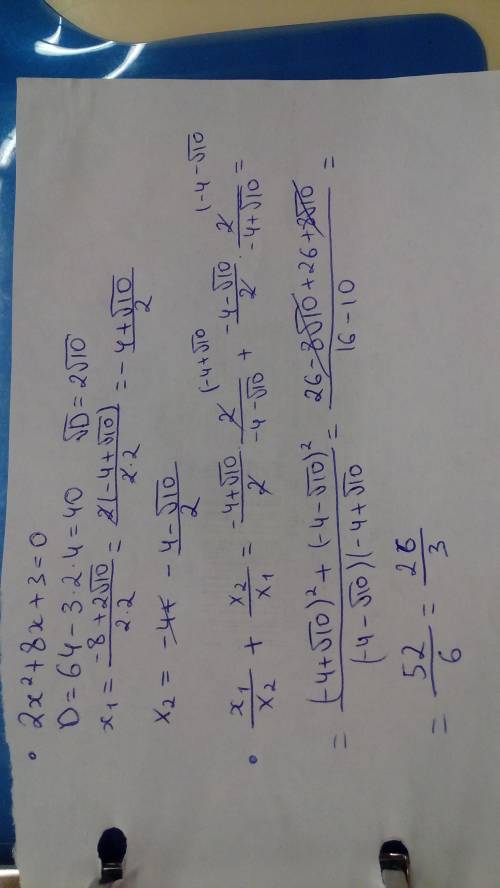 • 2x²+8x+3=0
D=64-3·2·4=40 √D=2√10
x₁= (-8+2√10)/(2·2) = 2(-4+√10)/(2·2) = (-4+√10)/2
x₂ = (-4-√10)/2
• x₁/x₂ + x₂/x₁ = (-4+√10)/2 · 2/(-4-√10) (-4+√10 + (-4-√10)/2 · 2/(-4+√10) (-4-√10 =
= ((-4+√10)²+(-4-√10)²)/((-4-√10)(-4+√10) = (26-8√10+26+8√10)/(16-10) =
= 52/6 = 26/3